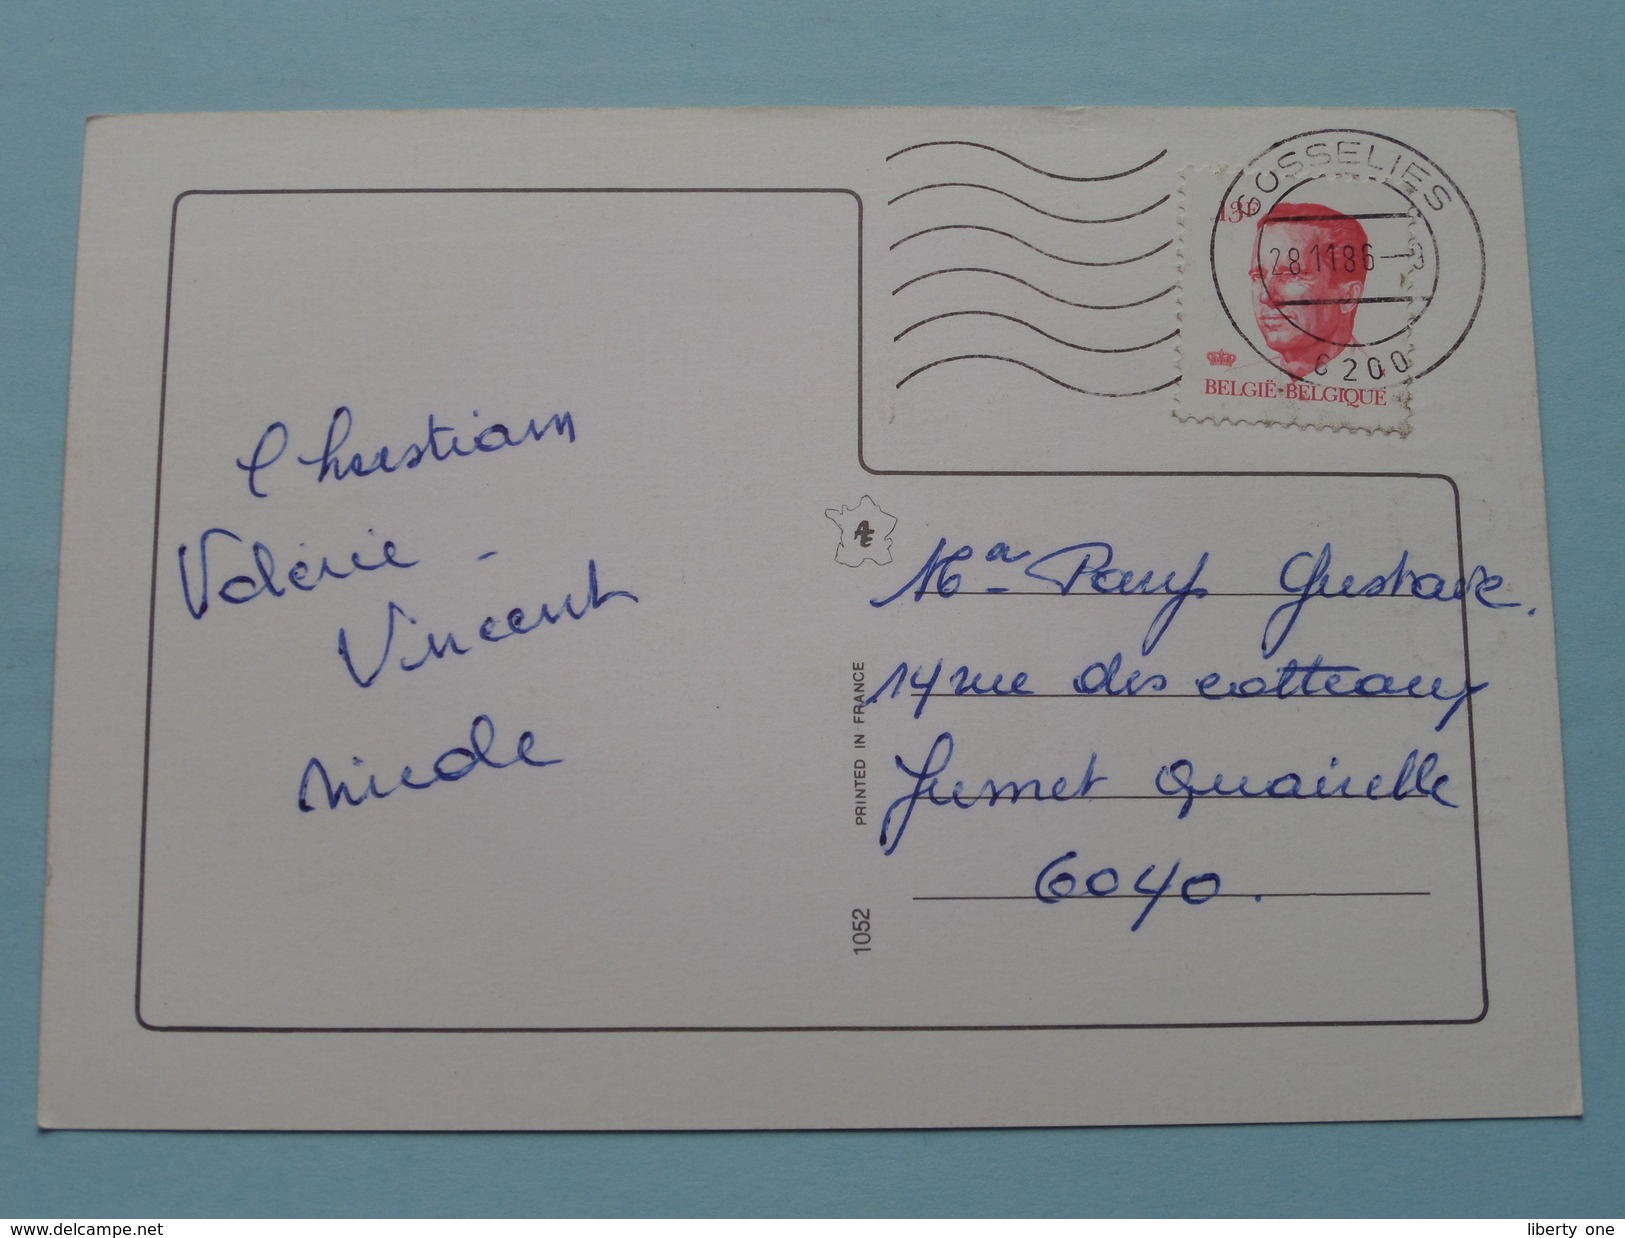 GOSSELIES
13F
28 11 86
6200
BELGIË-BELGIQUE
Christian
Valérie -
Vincent
Nicole
AE
Gustave.
14 rue des cotteaux
Jumet Quairelle
6040.
PRINTED IN FRANCE
1052
www.delcampe.net
liberty_one